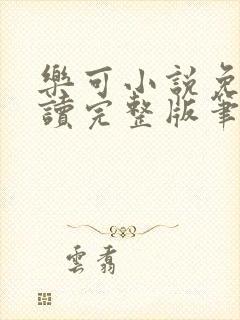 樂可小說免
讀完整版筆
雲翥